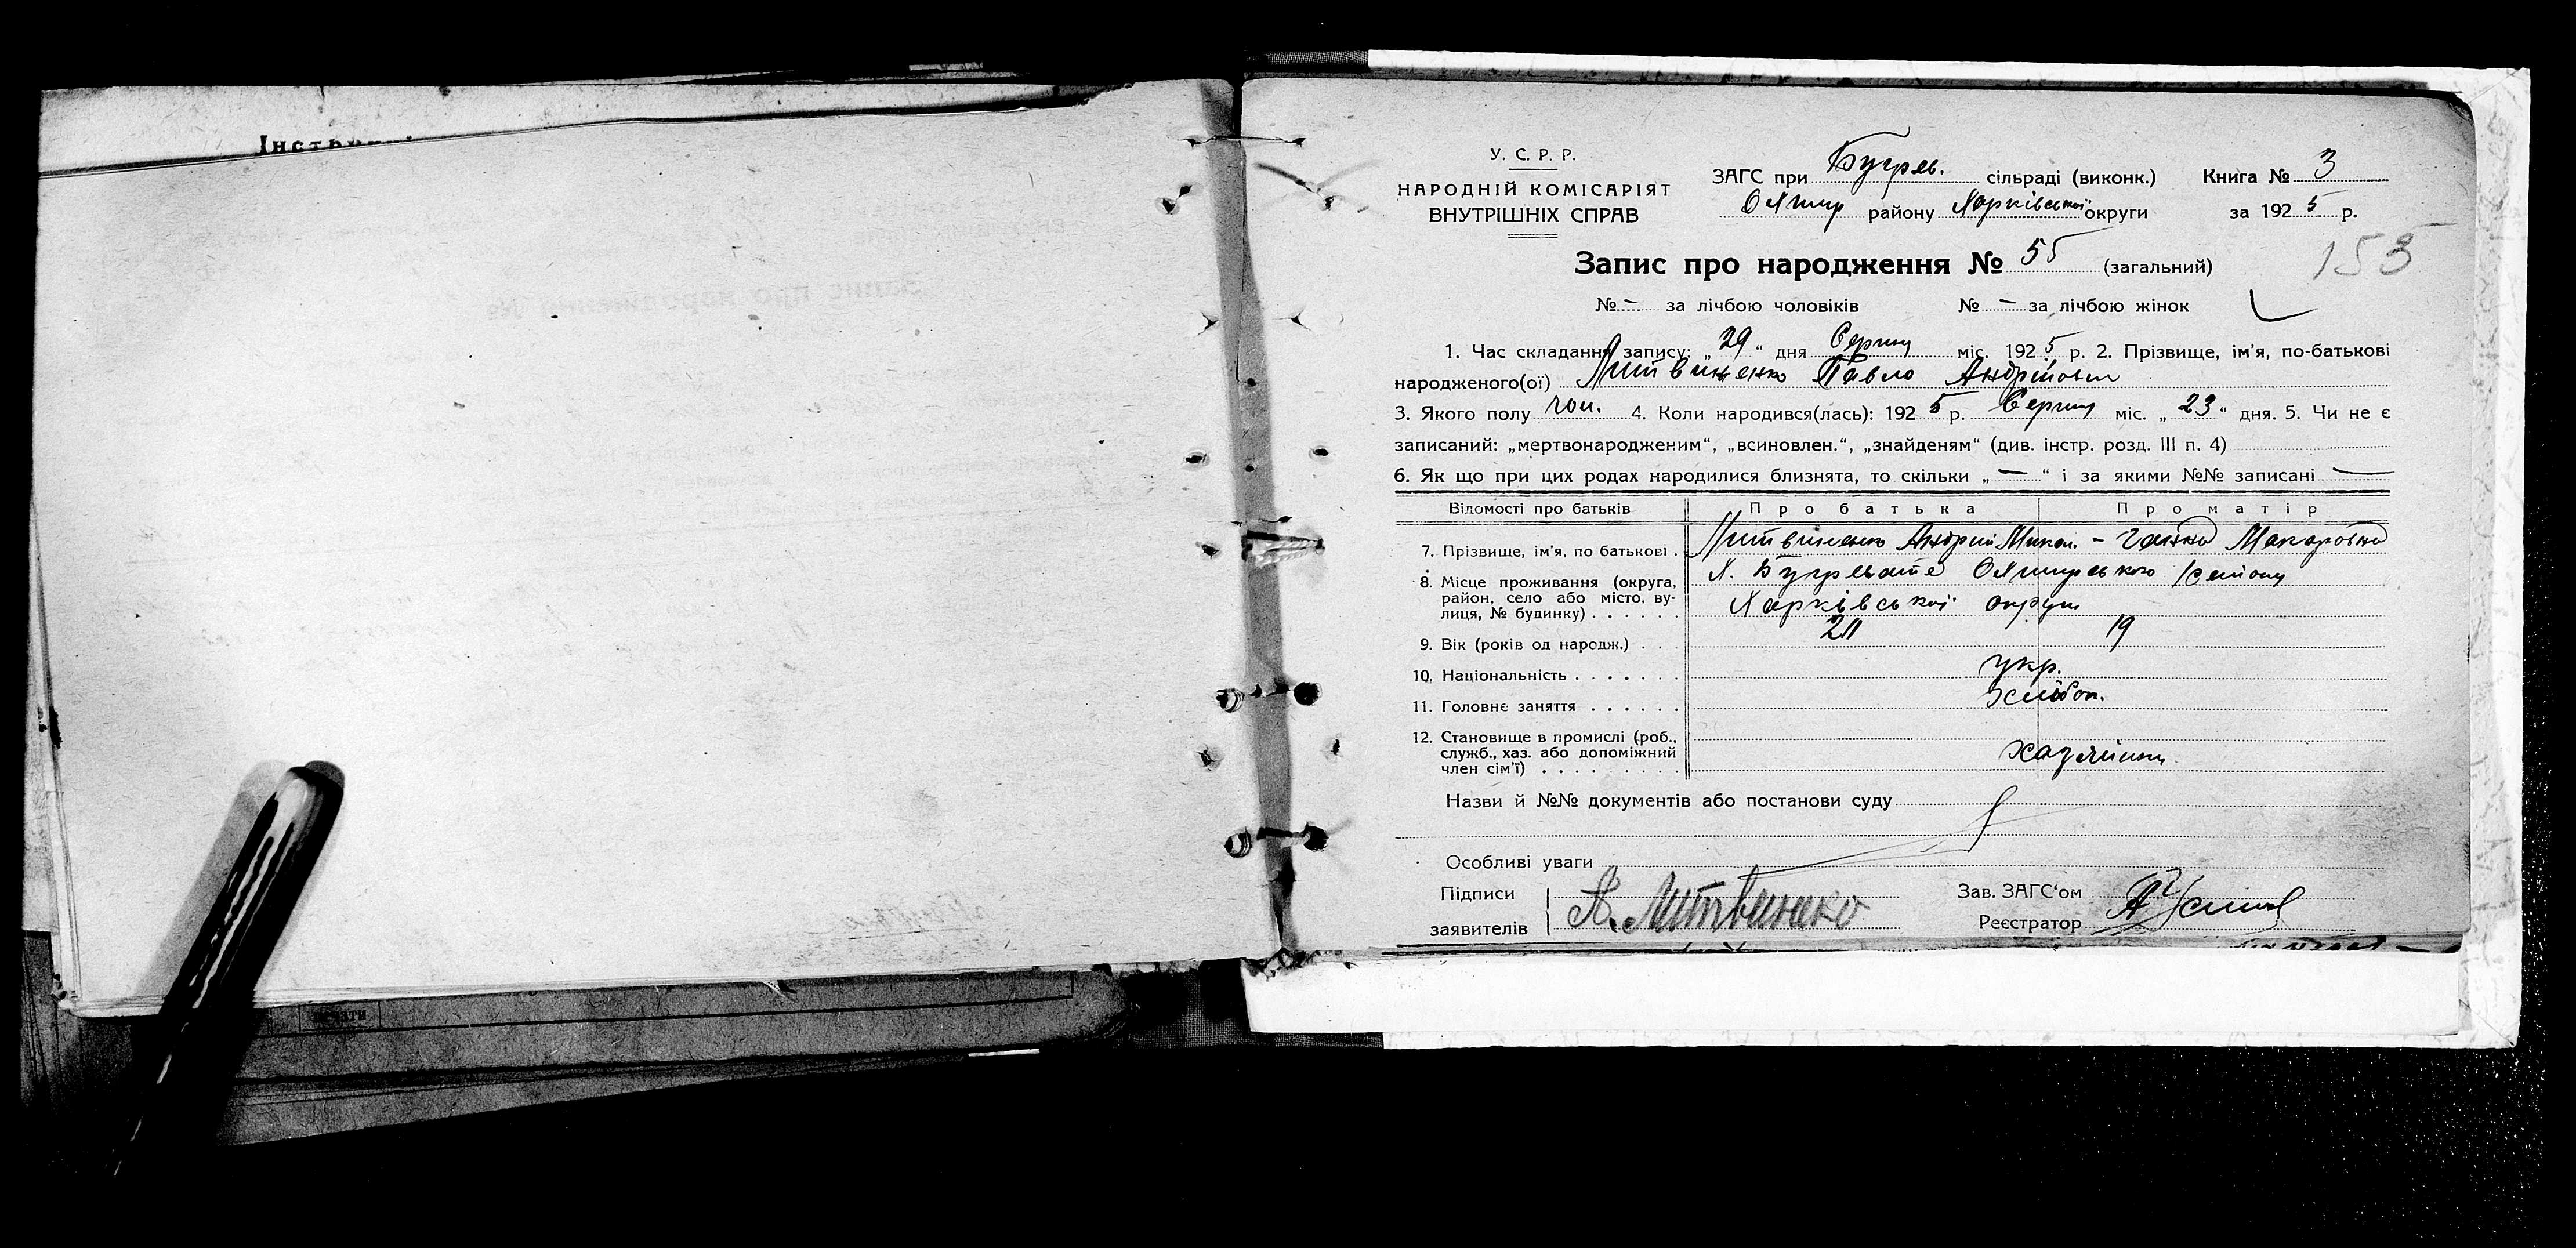 У. С. Р. Р.
НАРОДНІЙ КОМІСАРІЯТ
ВНУТРІШНІХ СПРАВ
ЗАГС при Бугрев. сільраді (виконк.) Книга № 3
району Харківської округи за 1925 р.
155
Запис про народження № 55 (загальний)
№ — за лічбою чоловіків № — за лічбою жінок
1. Час складання запису: „29“ дня Серпня міс. 1925 р. 2. Прізвище, ім'я, по-батькові
народженого(ої) Литвиненко Павло Андрійович
3. Якого полу чол. 4. Коли народився(лась): 1925 р. Серпня міс. „23“ дня. 5. Чи не є
записаний: „мертвонародженим“, „всиновлен.“, „знайденям“ (див. інстр. розд. III п. 4)
6. Як що при цих родах народилися близнята, то скільки „—“ і за якими №№ записані —
Відомості про батьків Про батька Про матір
7. Прізвище, ім'я, по батькові . Литвиненко Андрій Микол. – Ганна Макаровна
8. Місце проживання (округа, район, село або місто, вулиця, № будинку) . . . . . . Х.
Харківської округи
9. Вік (років од народж.) . . . 20 19
10. Національність . . . . . . . укр.
11. Головне заняття . . . . . . хлібоп.
12. Становище в промислі (роб., служб., хаз. або допоміжний член сім'ї) . . . . . . . . .
Назви й №№ документів або постанови суду
Особливі уваги
Підписи
заявителів А. Литвиненко
Зав. ЗАГС‘ом
Реєстратор